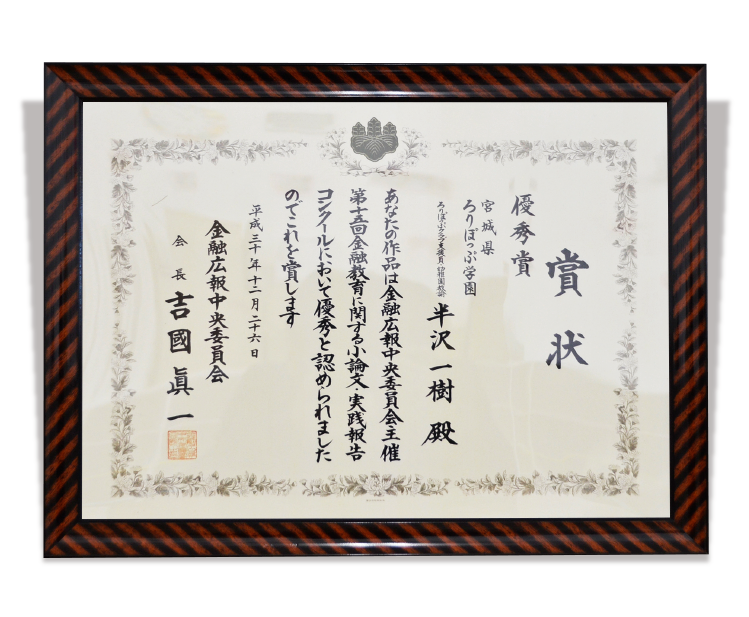 賞状
優秀賞
宮城県
ろりぽっぷ学園
半沢一樹 殿
あなたの作品は金融広報中央委員会主催
第十五回金融教育に関する小論文・実践報告
コンクールにおいて優秀と認められました
のでこれを賞します
平成三十年十二月二十六日
金融広報中央委員会
会長 吉國眞一